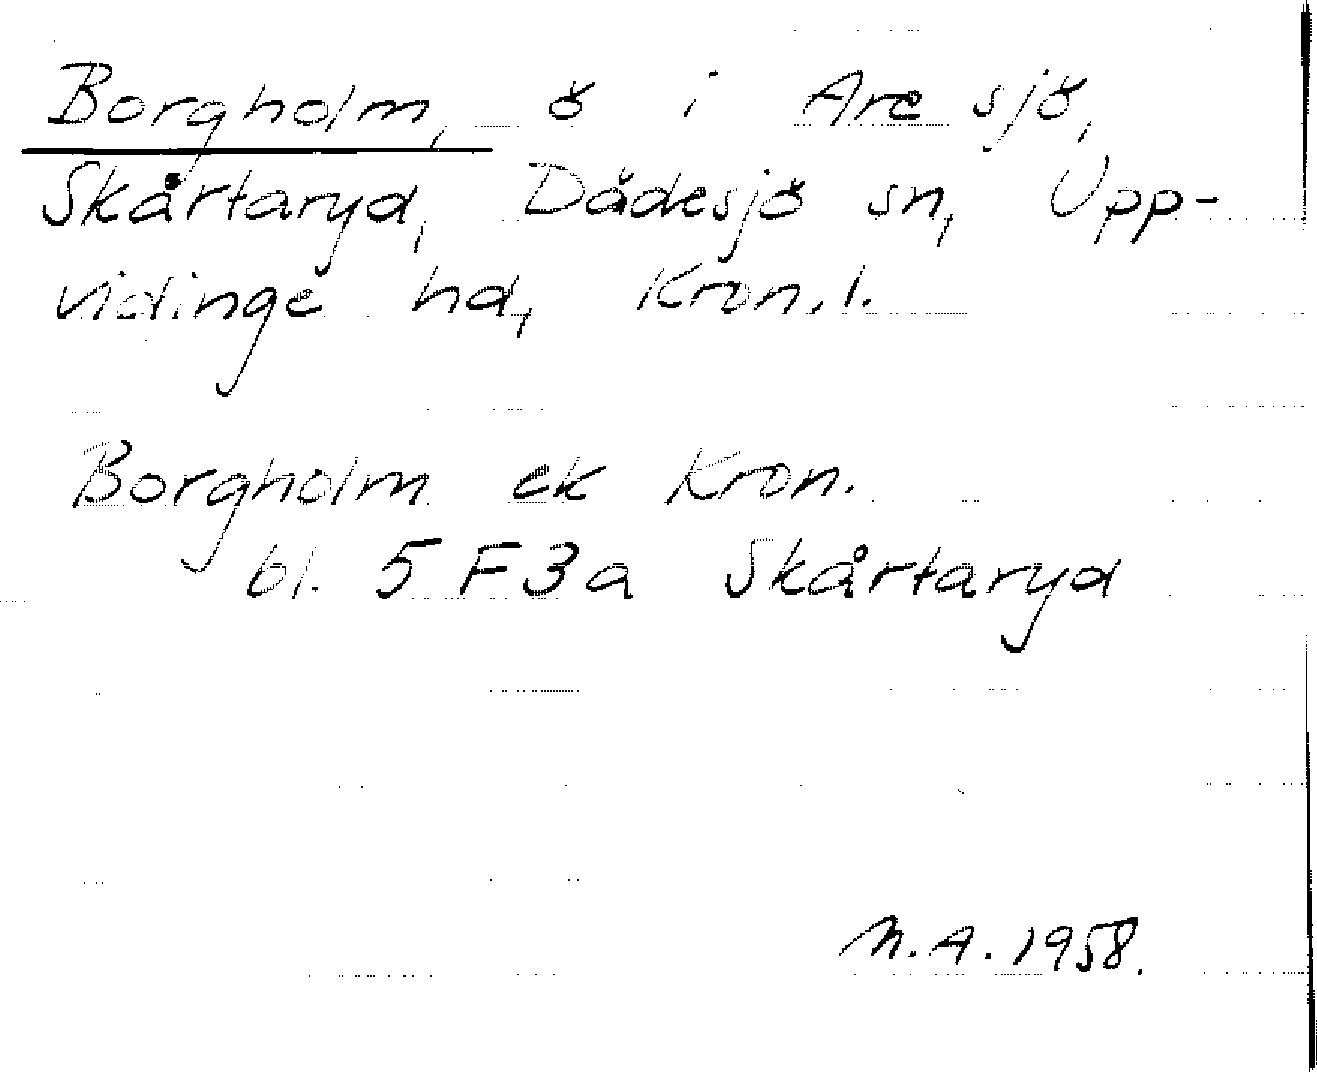 Borgholm, ö i Are sjö,
Skårtaryd, Dädesjö sn, Upp-
vidinge hd, Kron.l.
Borgholm ek Kron.
bl. 5 F 3 a Skårtaryd
N.A. 1958.